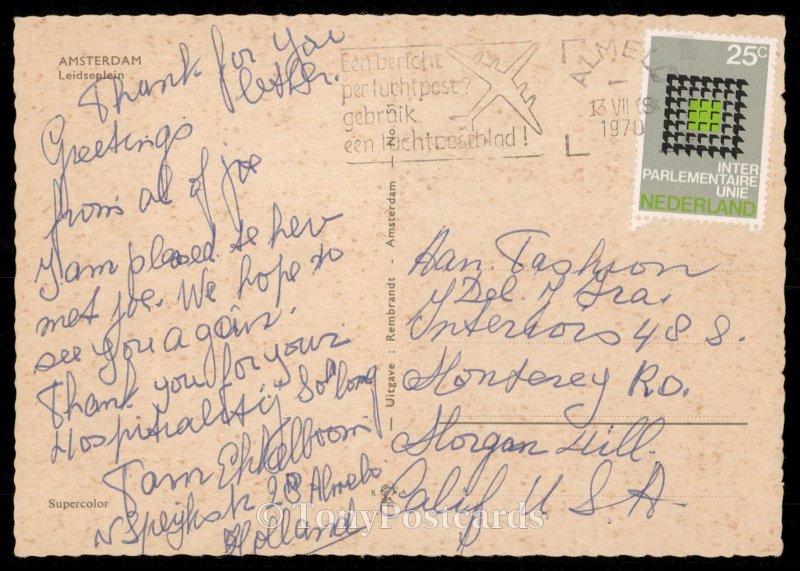 AMSTERDAM
Leidseplein
Thank for you
letter.
Greetings
from al of joe
I am pleased to hev
met joe. We hope to
see you agöin.
Thank you for your
Hospitality So long
Tam Ekkelboom
v Speijkstr 28 Almelo
Holland
Supercolor
Uitgave : Rembrandt - Amsterdam — No. 51
Een bericht
per luchtpost?
gebruik
een luchtpostblad!
ALMELO
13 VII
1970
25c
INTER
PARLEMENTAIRE
UNIE
NEDERLAND
Aan. Fashion
Del. Gra.
Interiors 48 S.
Monterey RD.
Morgan Hill.
Calif U S A
©TonyPostcards